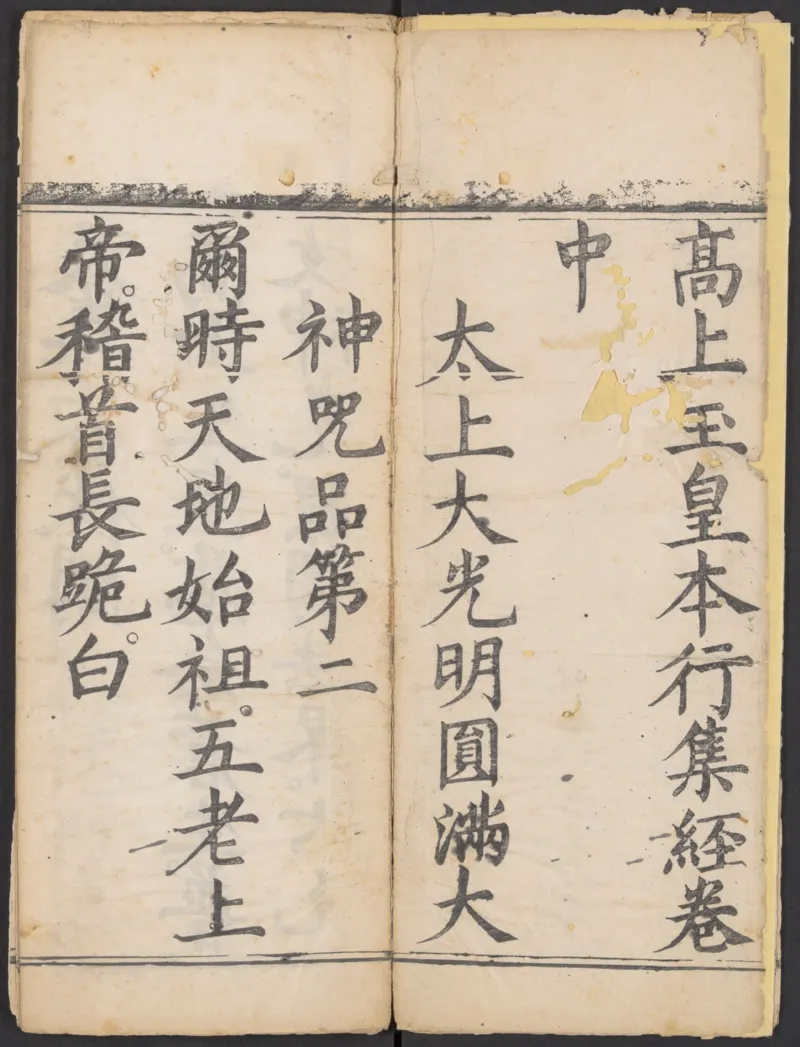 髙上玉皇本行集經卷
中
太上大光明圎滿大
神咒品第二
爾時天地始祖。五老上
帝。稽首長跪。白